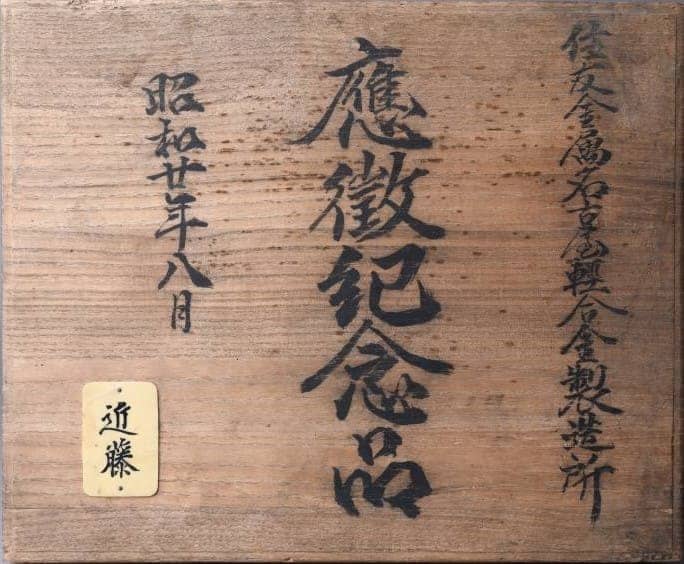 住友金属名古屋軽合金製造所
應徴紀念品
昭和廿年八月
近藤